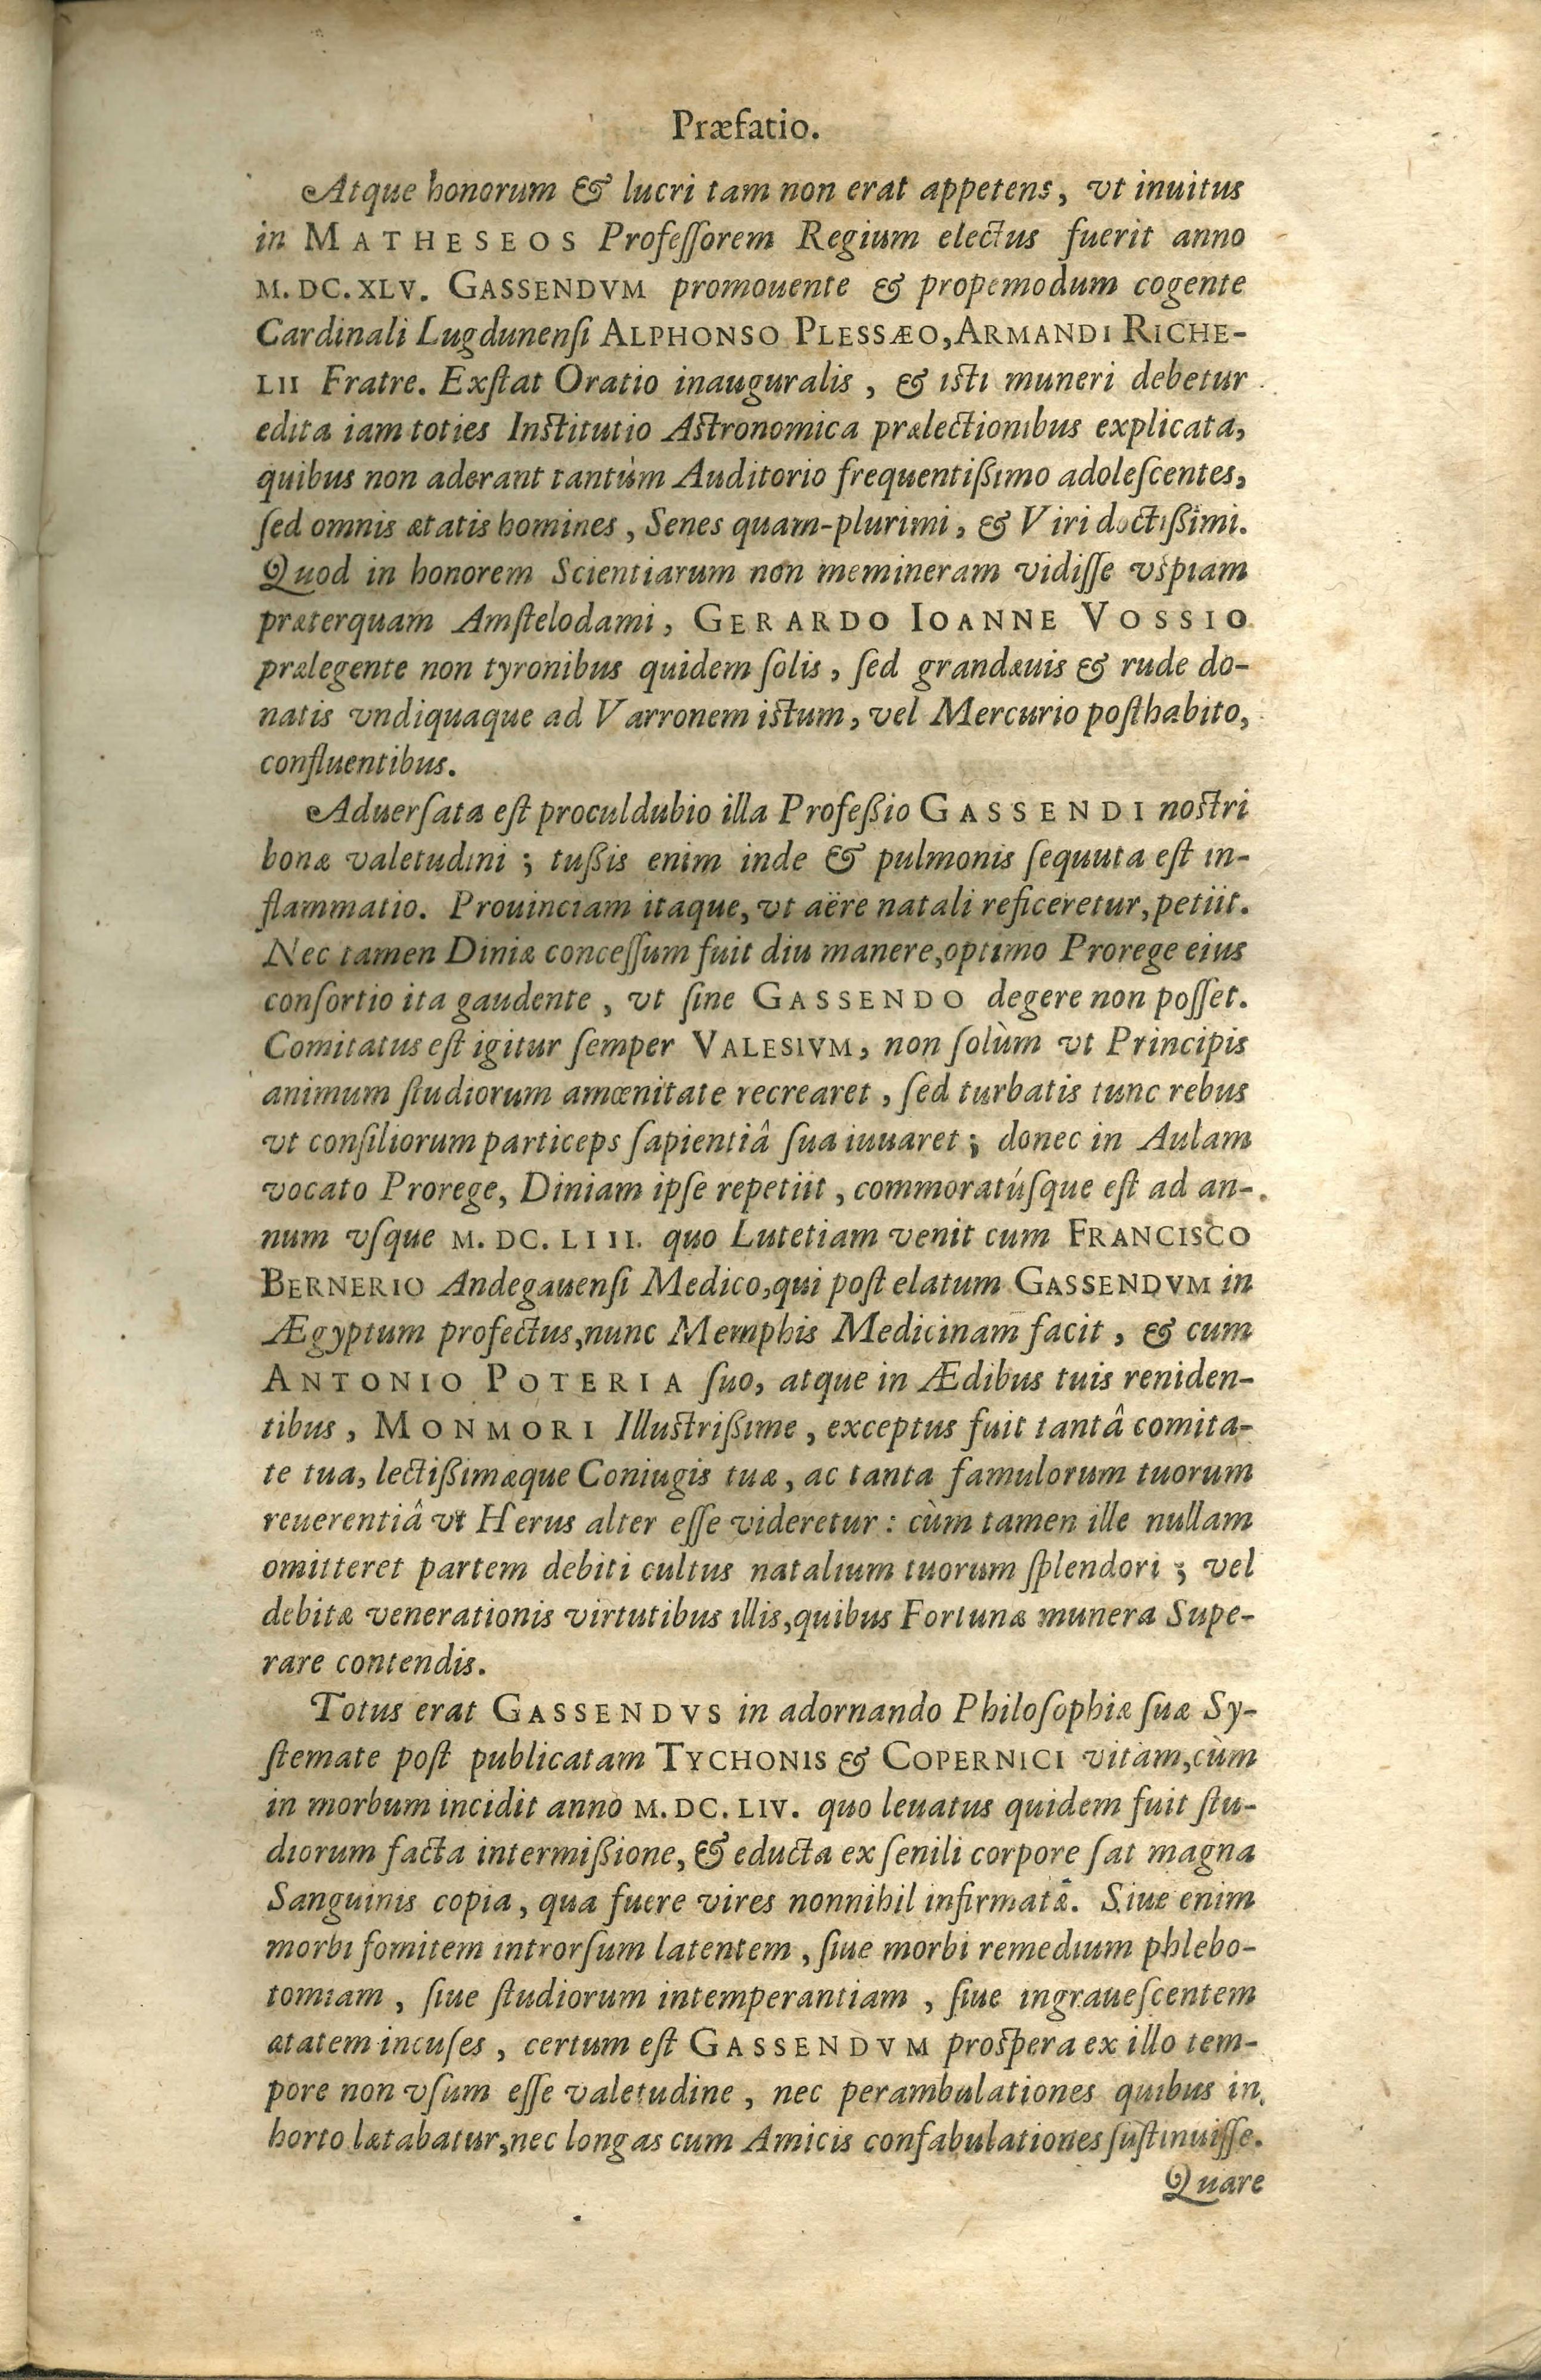 Præfatio.
Atque honorum & lucri tam non erat appetens, vt inuitus
in MATHESEOS Profeſſorem Regium electus fuerit anno
M. DC. XLV. GASSENDVM promouente & propemodum cogente
Cardinali Lugdunenſi ALPHONSO PLESSÆO, ARMANDI RICHE-
LII Fratre. Exſtat Oratio inauguralis, & iſti muneri debetur
edita iam toties Inſtitutio Aſtronomica prælectionibus explicata,
quibus non aderant tantùm Auditorio frequentißimo adoleſcentes,
ſed omnis ætatis homines, Senes quam-plurimi, & Viri doctißimi.
Quod in honorem Scientiarum non memineram vidiſſe vſpiam
præterquam Amſtelodami, GERARDO IOANNE VOSSIO
prælegente non tyronibus quidem ſolis, ſed grandæuis & rude do-
natis vndiquaque ad Varronem iſtum, vel Mercurio poſthabito,
confluentibus.
Aduerſata eſt proculdubio illa Profeßio GASSENDI noſtri
bonæ valetudini; tußis enim inde & pulmonis ſequuta eſt in-
flammatio. Prouinciam itaque, vt aëre natali reficeretur, petiit.
Nec tamen Diniæ conceſſum fuit diu manere, optimo Prorege eius
conſortio ita gaudente, vt ſine GASSENDO degere non poſſet.
Comitatus eſt igitur ſemper VALESIVM, non ſolùm vt Principis
animum ſtudiorum amœnitate recrearet, ſed turbatis tunc rebus
vt conſiliorum particeps ſapientiâ ſua iuuaret; donec in Aulam
vocato Prorege, Diniam ipſe repetiit, commoratúſque eſt ad an-
num vſque M. DC. LIII. quo Lutetiam venit cum FRANCISCO
BERNERIO Andegauenſi Medico, qui poſt elatum GASSENDVM in
Ægyptum profectus, nunc Memphis Medicinam facit, & cum
ANTONIO POTERIA ſuo, atque in Ædibus tuis reniden-
tibus, MONMORI Illuſtrißime, exceptus fuit tantâ comita-
te tua, lectißimæque Coniugis tuæ, ac tanta famulorum tuorum
reuerentiâ vt Herus alter eſſe videretur: cùm tamen ille nullam
omitteret partem debiti cultus natalium tuorum ſplendori; vel
debitæ venerationis virtutibus illis, quibus Fortunæ munera Supe-
rare contendis.
Totus erat GASSENDVS in adornando Philoſophiæ ſuæ Sy-
ſtemate poſt publicatam TYCHONIS & COPERNICI vitam, cùm
in morbum incidit anno M. DC. LIV. quo leuatus quidem fuit ſtu-
diorum facta intermißione, & educta ex ſenili corpore ſat magna
Sanguinis copia, qua fuere vires nonnihil infirmatæ. Siue enim
morbi fomitem introrſum latentem, ſiue morbi remedium phlebo-
tomiam, ſiue ſtudiorum intemperantiam, ſiue ingraueſcentem
ætatem incuſes, certum eſt GASSENDVM proſpera ex illo tem-
pore non vſum eſſe valetudine, nec perambulationes quibus in
horto lætabatur, nec longas cum Amicis confabulationes ſuſtinuiſſe.
Quare